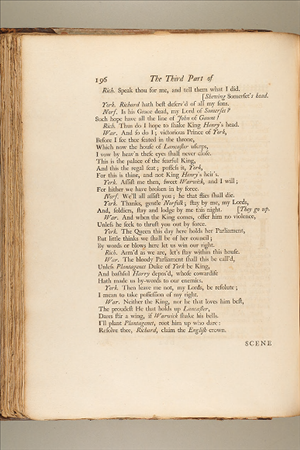 196 The Third Part of
Rich. Speak thou for me, and tell them what I did.
[Shewing Somerset's head.
York. Richard hath best deserv'd of all my sons.
Norf. Is his Grace dead, my Lord of Somerset?
Such hope have all the line of John of Gaunt!
Rich. Thus do I hope to shake King Henry's head.
War. And so do I; victorious Prince of York,
Before I see thee seated in the throne,
Which now the house of Lancaster usurps,
I vow by heav'n these eyes shall never close.
This is the palace of the fearful King,
And this the regal seat; possess it, York,
For this is thine, and not King Henry's heir's.
York. Assist me then, sweet Warwick, and I will;
For hither we have broken in by force.
Norf. We'll all assist you; he that flies shall die.
York. Thanks, gentle Norfolk; stay by me, my Lords,
And, soldiers, stay and lodge by me this night. [They go up.
War. And when the King comes, offer him no violence,
Unless he seek to thrust you out by force.
York. The Queen this day here holds her Parliament,
But little thinks we shall be of her council;
By words or blows here let us win our right.
Rich. Arm'd as we are, let's stay within this house.
War. The bloody Parliament shall this be call'd,
Unless Plantagenet Duke of York be King,
And bashful Harry depos'd, whose cowardise
Hath made us by-words to our enemies.
York. Then leave me not, my Lords, be resolute;
I mean to take possession of my right.
War. Neither the King, nor he that loves him best,
The proudest He that holds up Lancaster,
Dares stir a wing, if Warwick shake his bells.
I'll plant Plantagenet, root him up who dare:
Resolve thee, Richard, claim the English crown.
SCENE